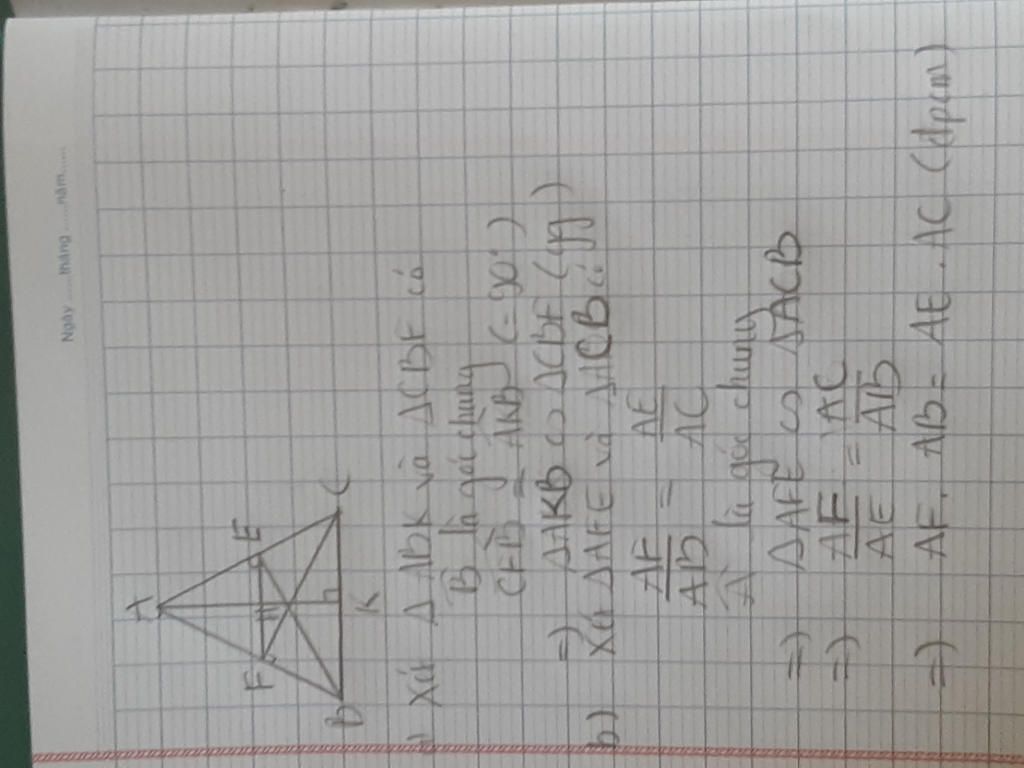 Ngày ......tháng ......năm......
A
F E
H
B K C
a) Xét Δ ABK và ΔCBF có
B̂ là góc chung
CFB = AKB (= 90°)
=) ΔAKB ∽ ΔCBF (gg)
b) Xét ΔAFE và ΔACB có
AF/AB = AE/AC
Â là góc chung
=) ΔAFE ∽ ΔACB
=) AF/AE = AC/AB
=) AF. AB = AE. AC (đpcm)